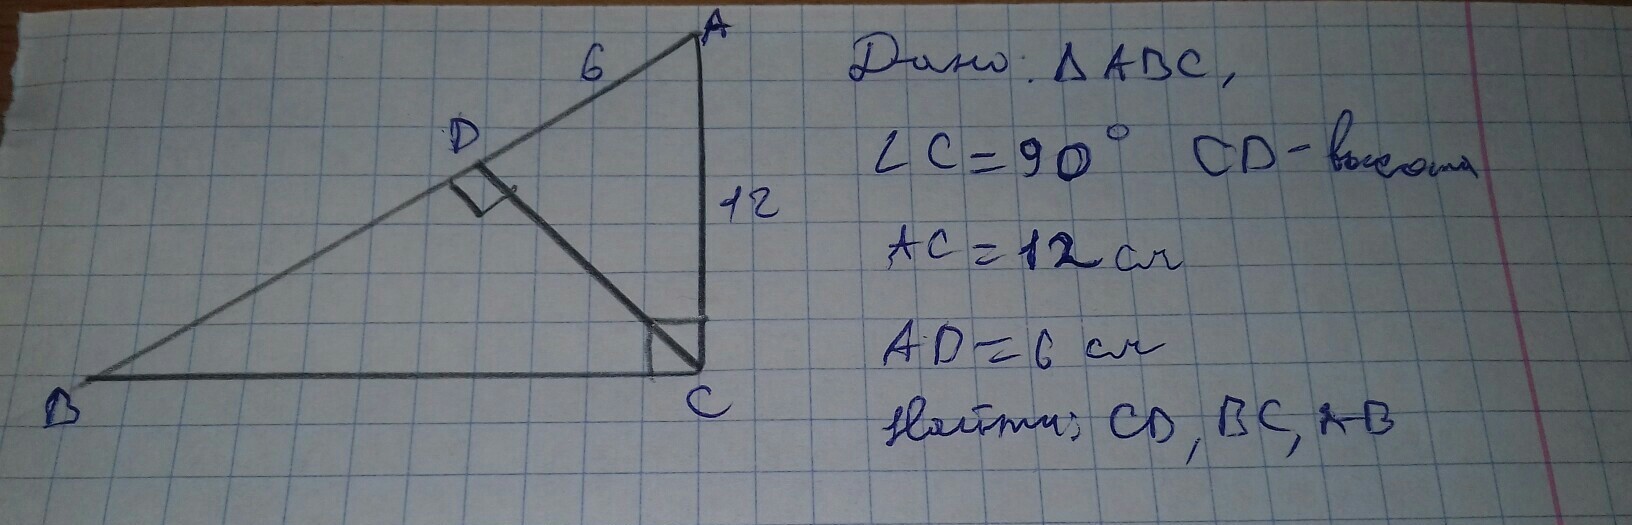 A
6
D
12
B
C
Дано: Δ ABC,
∠ C = 90° CD - высота
AC = 12 см
AD = 6 см
Найти: CD, BC, AB